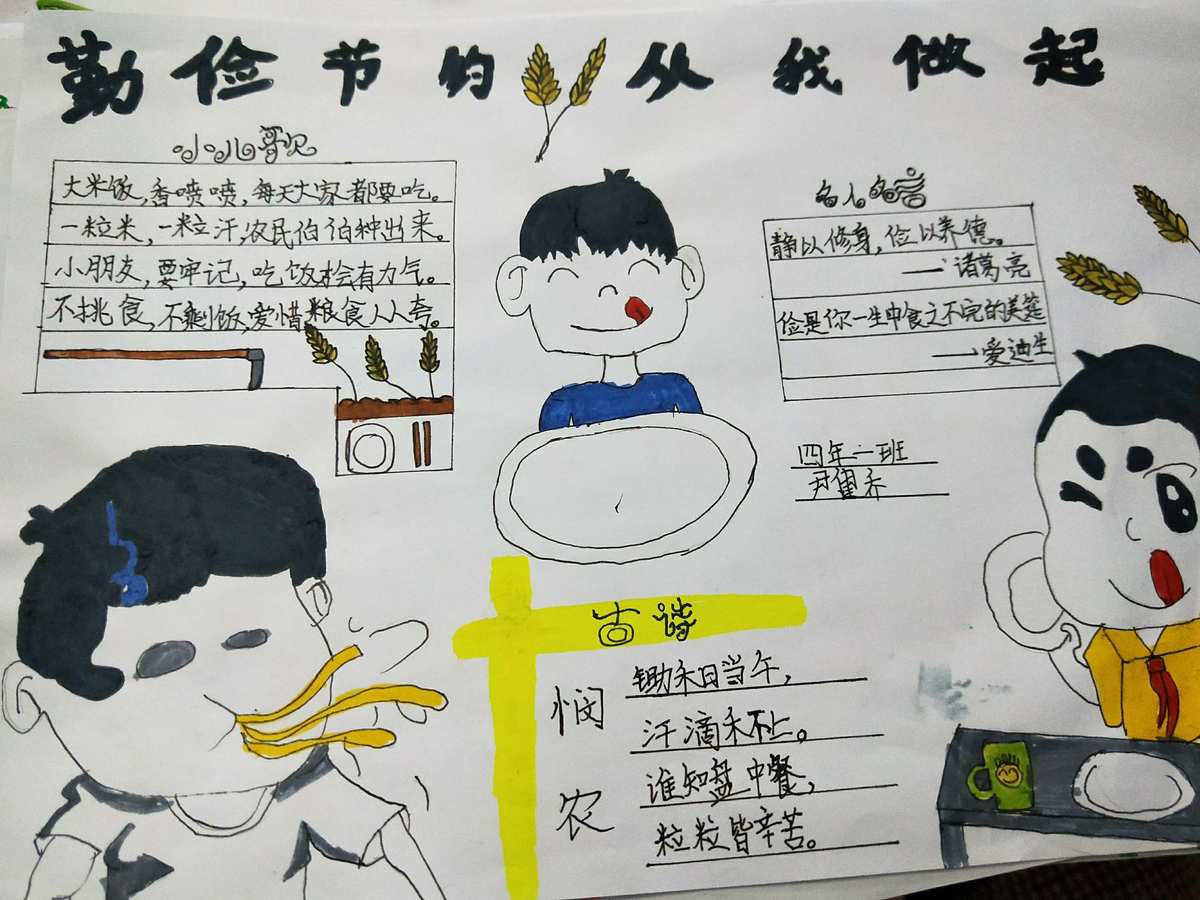 勤俭节约 从我做起
小儿歌
大米饭,香喷喷,每天大家都要吃。
一粒米,一粒汗,农民伯伯种出来。
小朋友,要牢记,吃饭才会有力气。
不挑食,不剩饭,爱惜粮食人人夸。
名人名言
静以修身,俭以养德。
——诸葛亮
俭是你一生中食之不完的美筵
——爱迪生
四年一班
古诗
悯农
锄禾日当午,
汗滴禾下土。
谁知盘中餐,
粒粒皆辛苦。